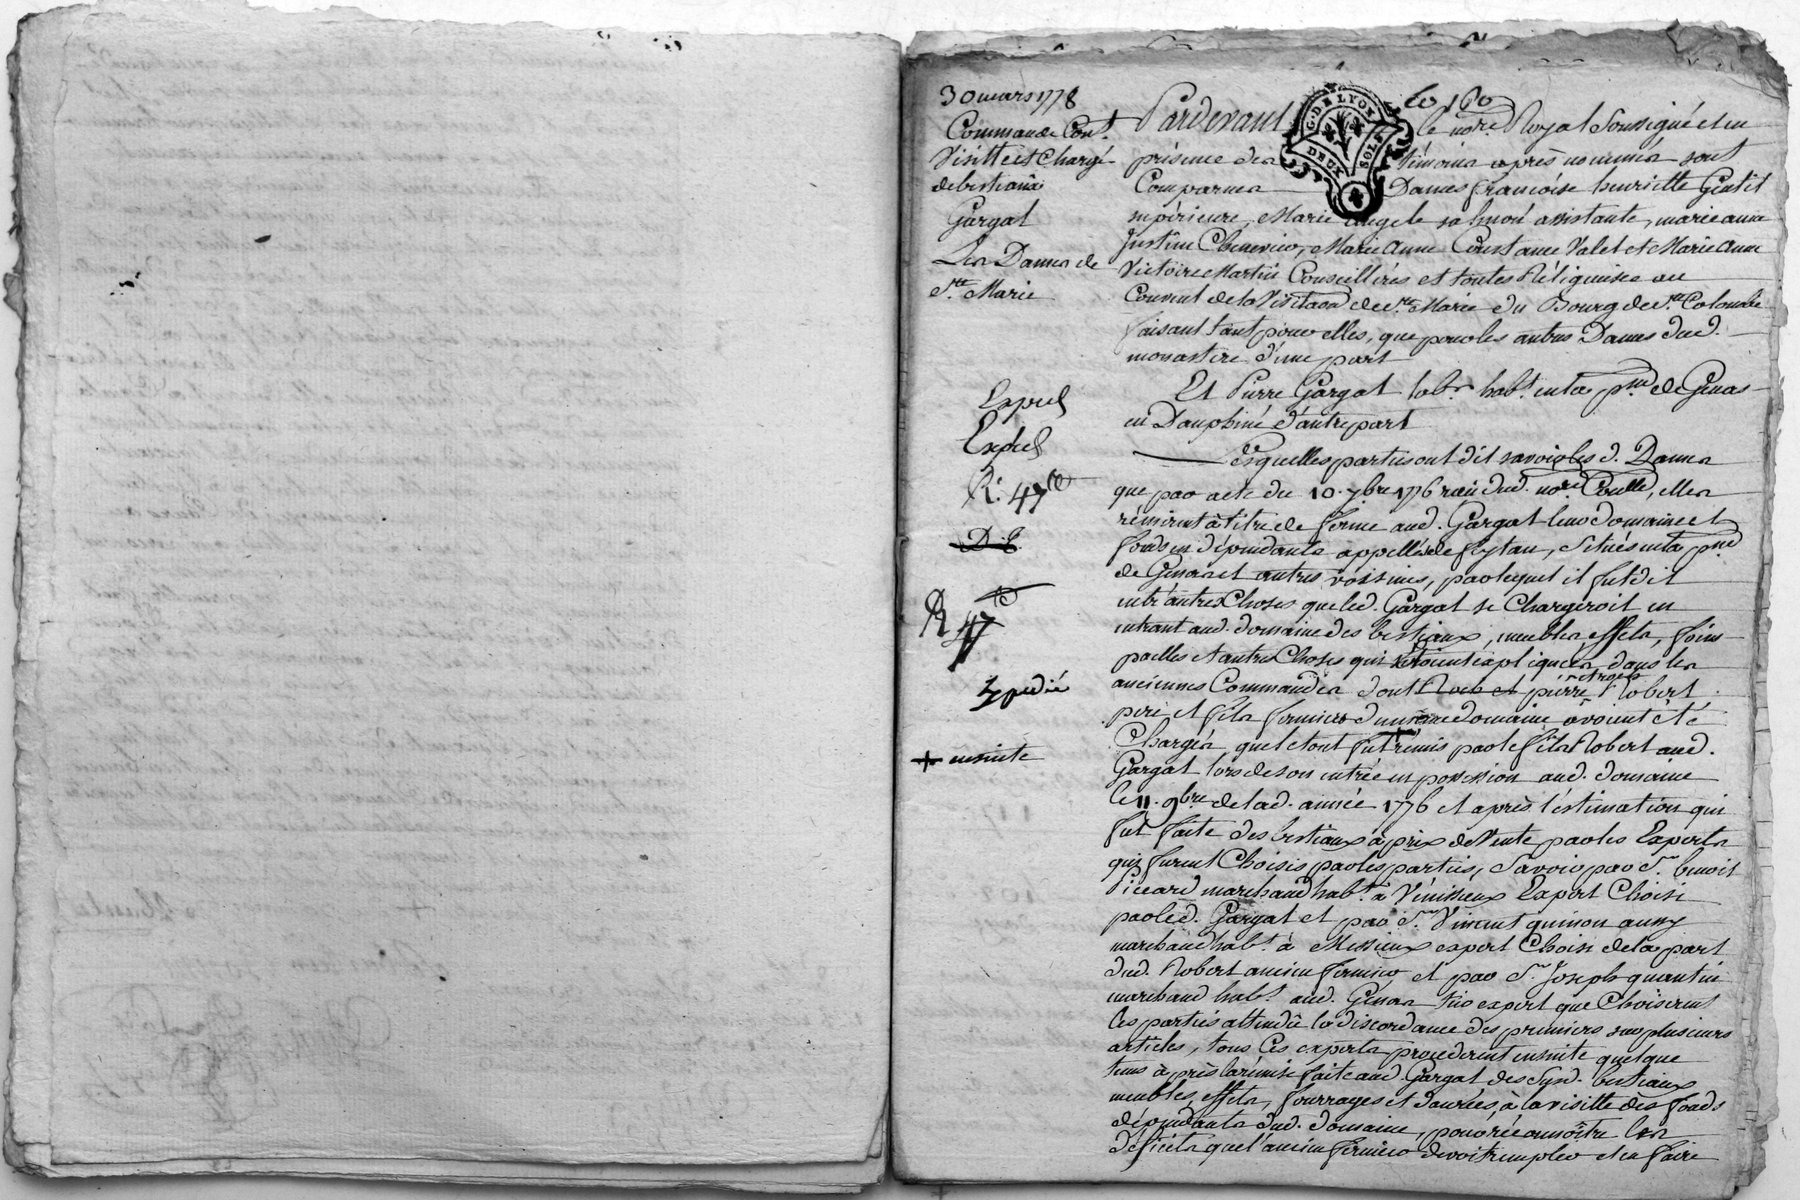 30 mars 1778
Commande Cont.
Visitte et Chargé
de bestiaux
Gargat
Les Dames de
Ste. Marie
Expéd
Expéd
R. 47
D. E.
R 47
Expedié
+ ensuite
G. DE LYON
DEUX SOLS
Pardevant le nore. Royal soussigné et en
présence des témoins après nommés sont
Comparues Dames françoise henriette Gentil
supérieure, Marie angele assistante, marie anne
justine Chenevier, Marie Anne Constance Valet et Marie Anne
Victoire Martin Conseilleres et toutes Réligieuses au
Couvent de la Visitaon de Ste. Marie du Bourg de Ste. Colombe
faisant tant pour elles, que pour les autres Dames dud.
monastere d'une part
Et Pierre Gargat labr. habt. en la psse. de Genas
en Dauphiné d'autre part
Lesquelles parties ont dit savoir les d. Dames
que par acte du 10. 7bre 1776 reçu dud. nore. elles
rémirent à titre de ferme aud. Gargat leur domaine et
fonds en dépendants appellés de feytan, situés en la psse.
de Genas et autres voisines, par lequel il fut dit
entr'autres Choses que led. Gargat se Chargeroit en
entrant aud. domaine des bestiaux, meubles effets, foins
pailles et autres Choses qui étoient expliquées dans les
anciennes Commandes dont Roch et pierre Robert
pere et fils fermiers dud. domaine avoient été
Chargés, que le tout fut rémis par le fils Robert aud.
Gargat lors de son entrée en possession aud. domaine
le 11. 9bre de lad. année 1776 et après l'estimation qui
fut faite des bestiaux à prix de Vente par les Experts
qui furent Choisis par les parties, Savoir par Sr. benoit
Piccard marchand habt. à Vénissieux Expert Choisi
par led. Gargat et par Sr. Vincent quinon aussy
marchand habt. à Messieux expert Choisi de la part
dud. Robert ancien fermier et par Sr. Joseph quantin
marchand habt. aud. Genas tiers expert que Choisirent
les parties attendû la discordance des premiers sur plusieurs
articles, tous Ces experts procederent ensuite quelque
tems après la rémise faite aud. Gargat des susd. bestiaux
meubles, effets, fourrages et danrées, à la visitte des fonds
dépendants dud. domaine, pour réconnoître les
déficits que l'ancien fermier devoit remplir et en faire